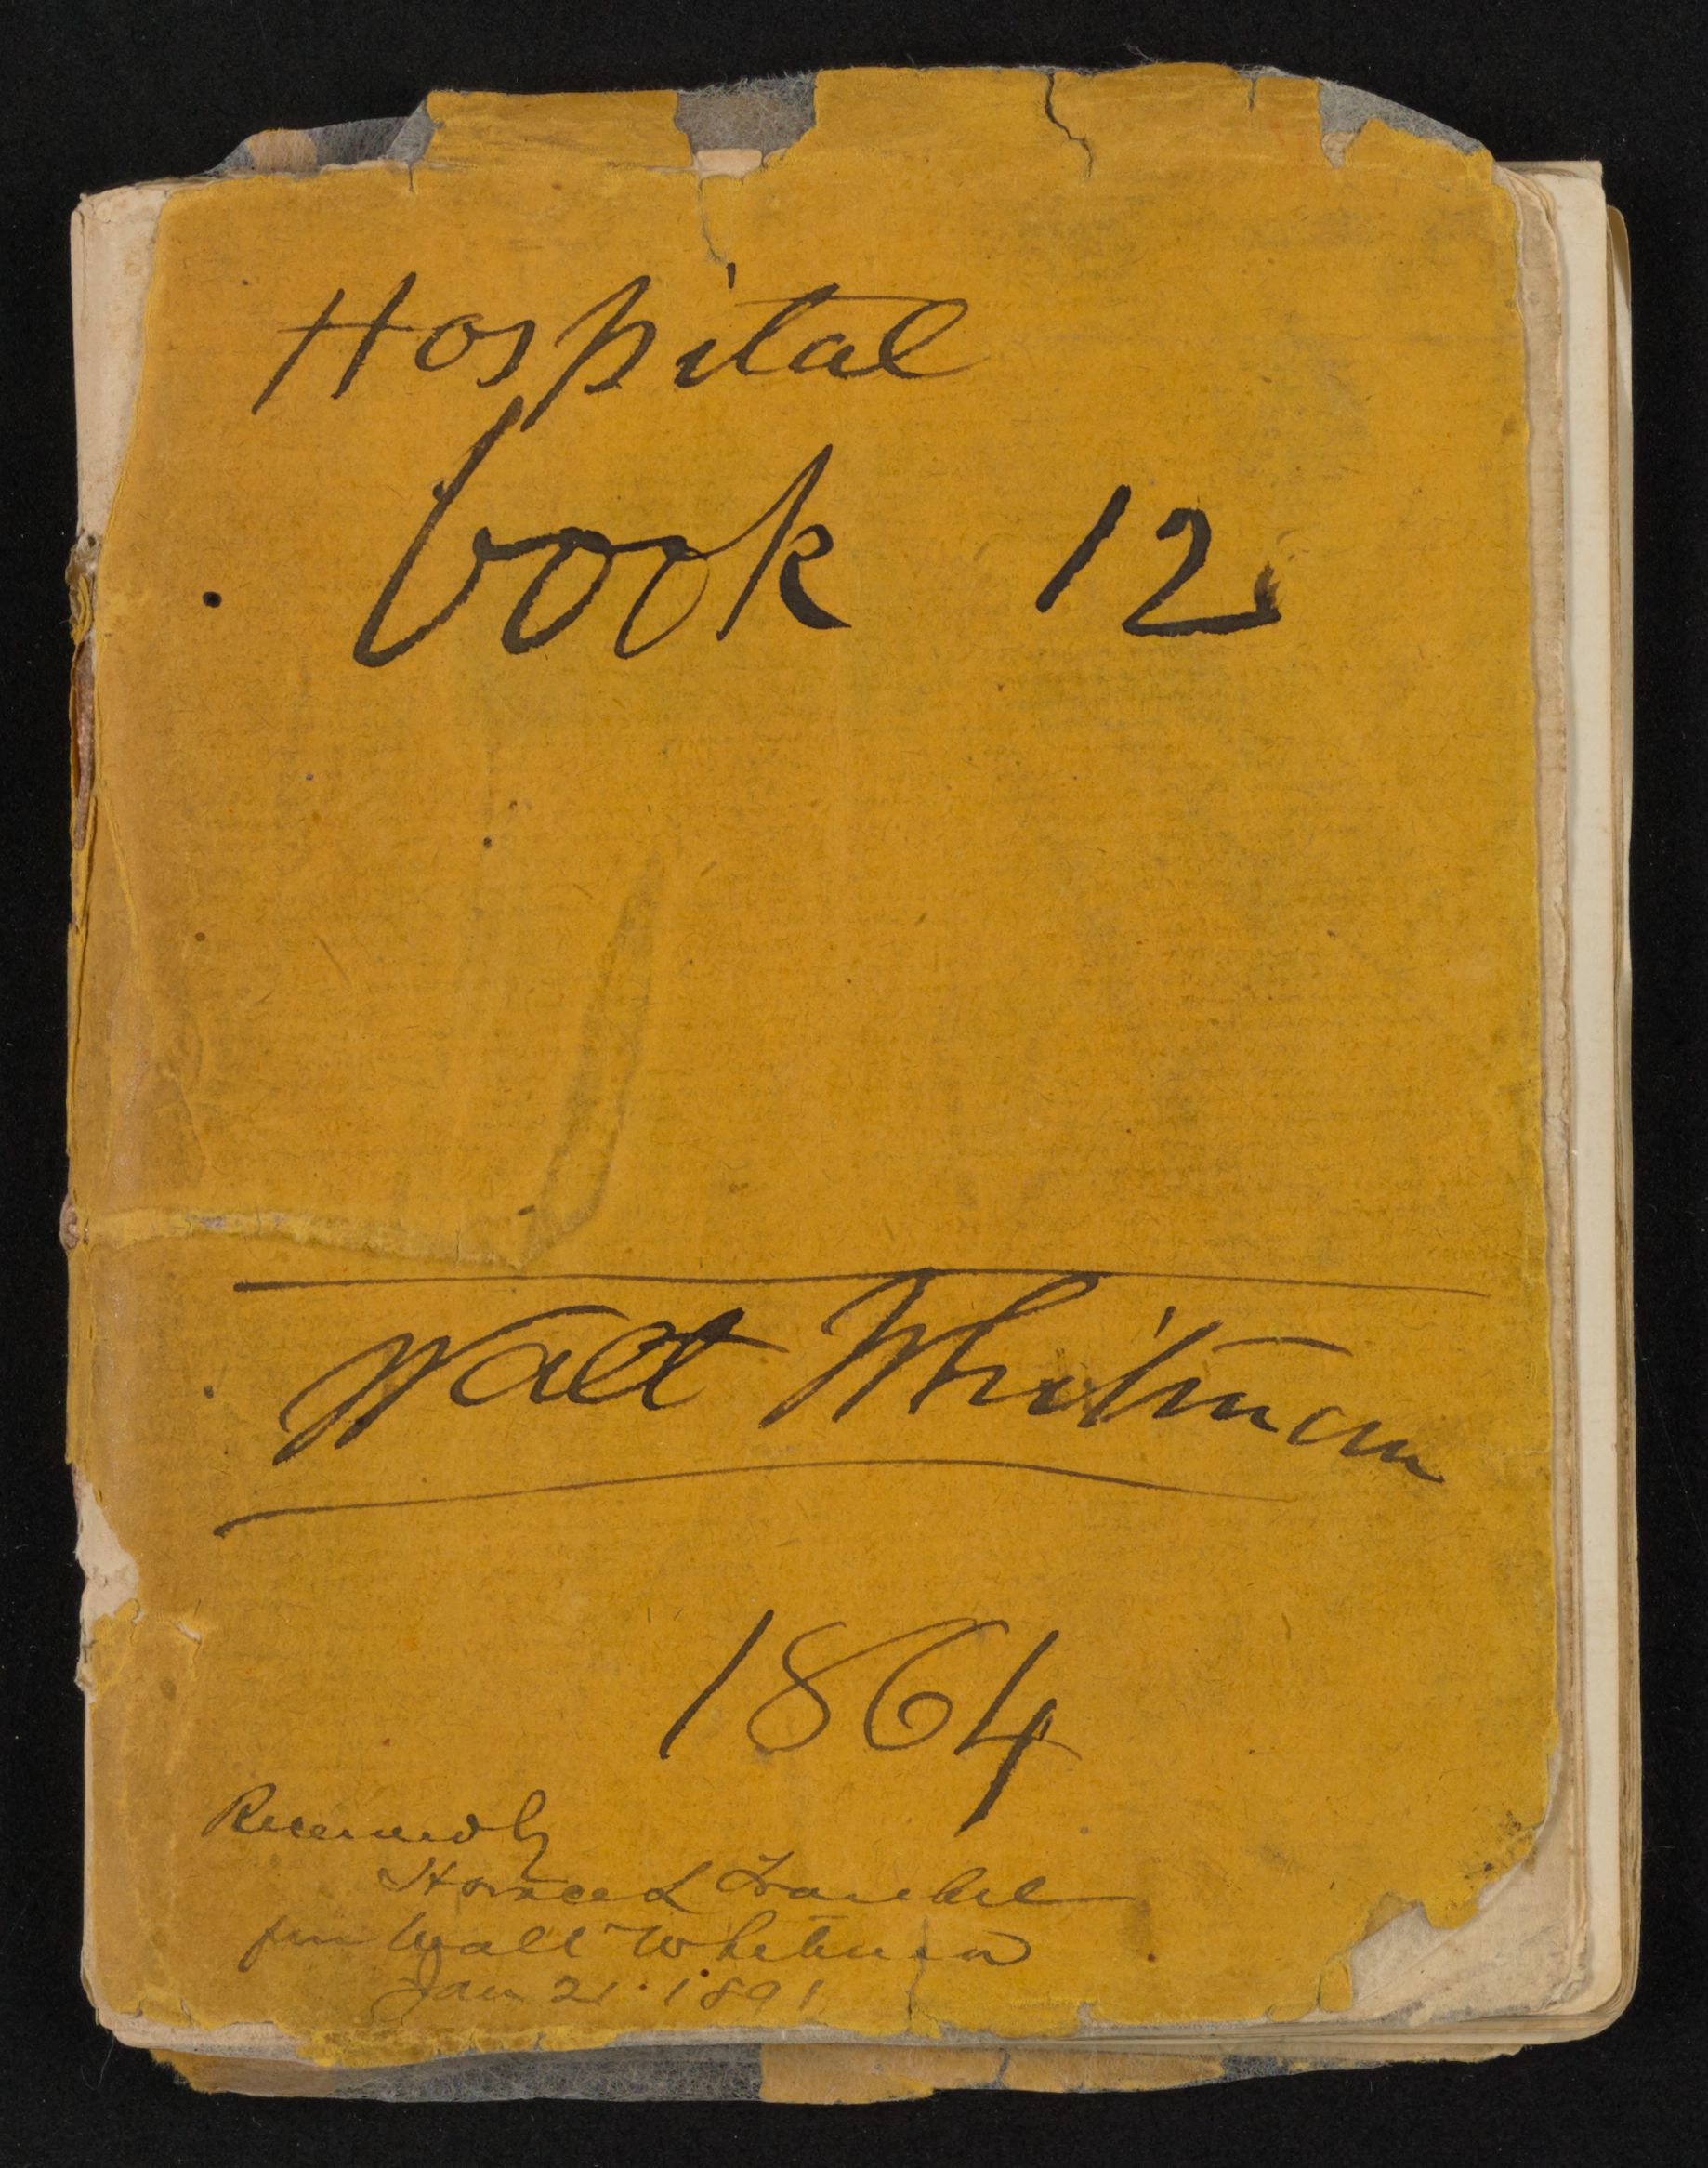 Hospital
book 12
Walt Whitman
1864
Received by
Horace L Traubel
from Walt Whitman
Jan 21. 1891